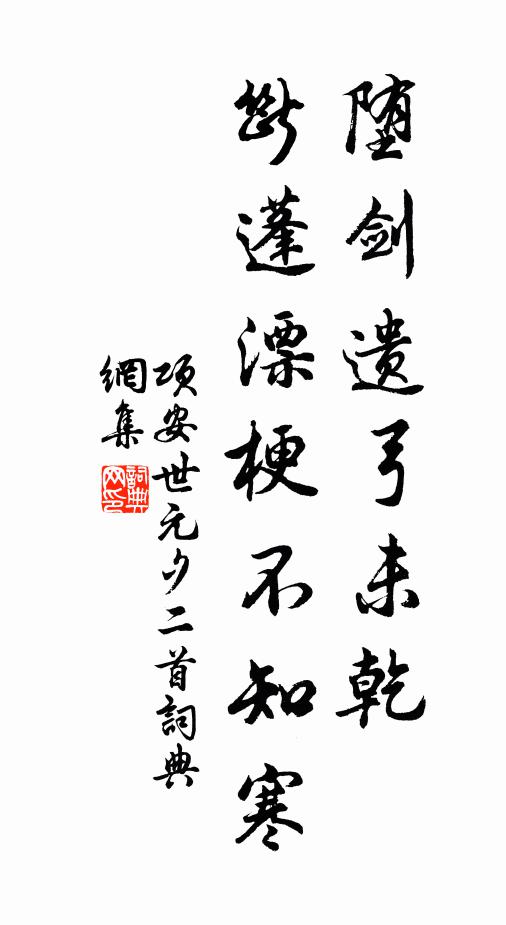 堕剑遗弓未乾
斷蓬漂梗不知寒
項安世元夕二首詞典
網集
詞典
网印